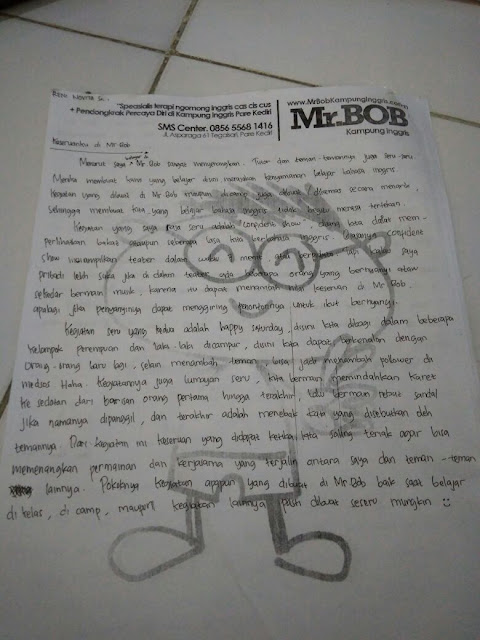 www.MrBobKampungInggris.com
"Spesialis terapi ngomong inggris cas cis cus
+ Pendongkrak Percaya Diri di Kampung Inggris Pare Kediri
Mr.BOB
Kampung Inggris
SMS Center. 0856 5568 1416
Jl. Asparaga 61 Tegalsari, Pare Kediri
Keseruanku di Mr Bob
Menurut saya belajar di Mr Bob sangat menyenangkan. Tutor dan teman-temannya juga seru-seru
Mereka membuat kami yang belajar disini merasakan kenyamanan belajar bahasa inggris
kegiatan yang dibuat di Mr Bob maupun di camp juga dibuat / dikemas secara menarik,
sehingga membuat kami yang belajar bahasa inggris tidak begitu merasa tertekan.
kegiatan yang saya rasa seru adalah confident show, disini kita dapat mem-
perlihatkan bakat ataupun seberapa bisa kita berbahasa inggris. biasanya confident
show menampilkan teater dalam waktu menit, atau bernyanyi, tapi kalau saya
pribadi lebih suka jika di dalam teater ada beberapa orang yang bernyanyi atau
sekedar bermain musik, karena itu dapat menambah nilai keseruan di Mr Bob.
apalagi jika penyanyinya dapat menggiring penontonnya untuk ikut bernyanyi.
Kegiatan seru yang kedua adalah happy saturday, disini kita dibagi dalam beberapa
kelompok perempuan dan laki-laki dicampur, disini kita dapat berkenalan dengan
orang-orang baru lagi, selain menambah teman bisa jadi menambah polower di
medsos Haha kegiatannya juga lumayan seru, kita bermain memindahkan karet
ke sedotan dari barisan orang pertama hingga terakhir, lalu bermain rebut sandal
jika namanya dipanggil, dan terakhir adalah menebak kata yang disebutkan oleh
temannya Dari kegiatan ini keseruan yang didapat ketika kita saling teriak agar bisa
memenangkan permainan dan kerjasama yang terjalin antara saya dan teman-teman
lainnya. Pokoknya kegiatan apapun yang dibuat di Mr Bob baik saat belajar
di kelas, di camp, maupun kegiatan lainnya pasti dibuat seseru mungkin :)